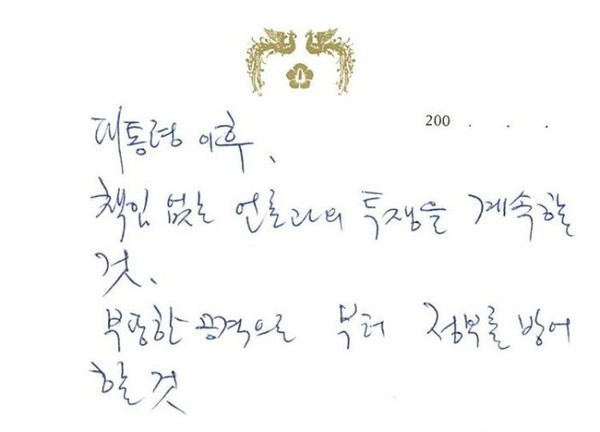 200 . . .
대통령 이후,
책임 없는 언론과의 투쟁을 계속할
것,
부당한 공격으로부터 정부를 방어
할 것